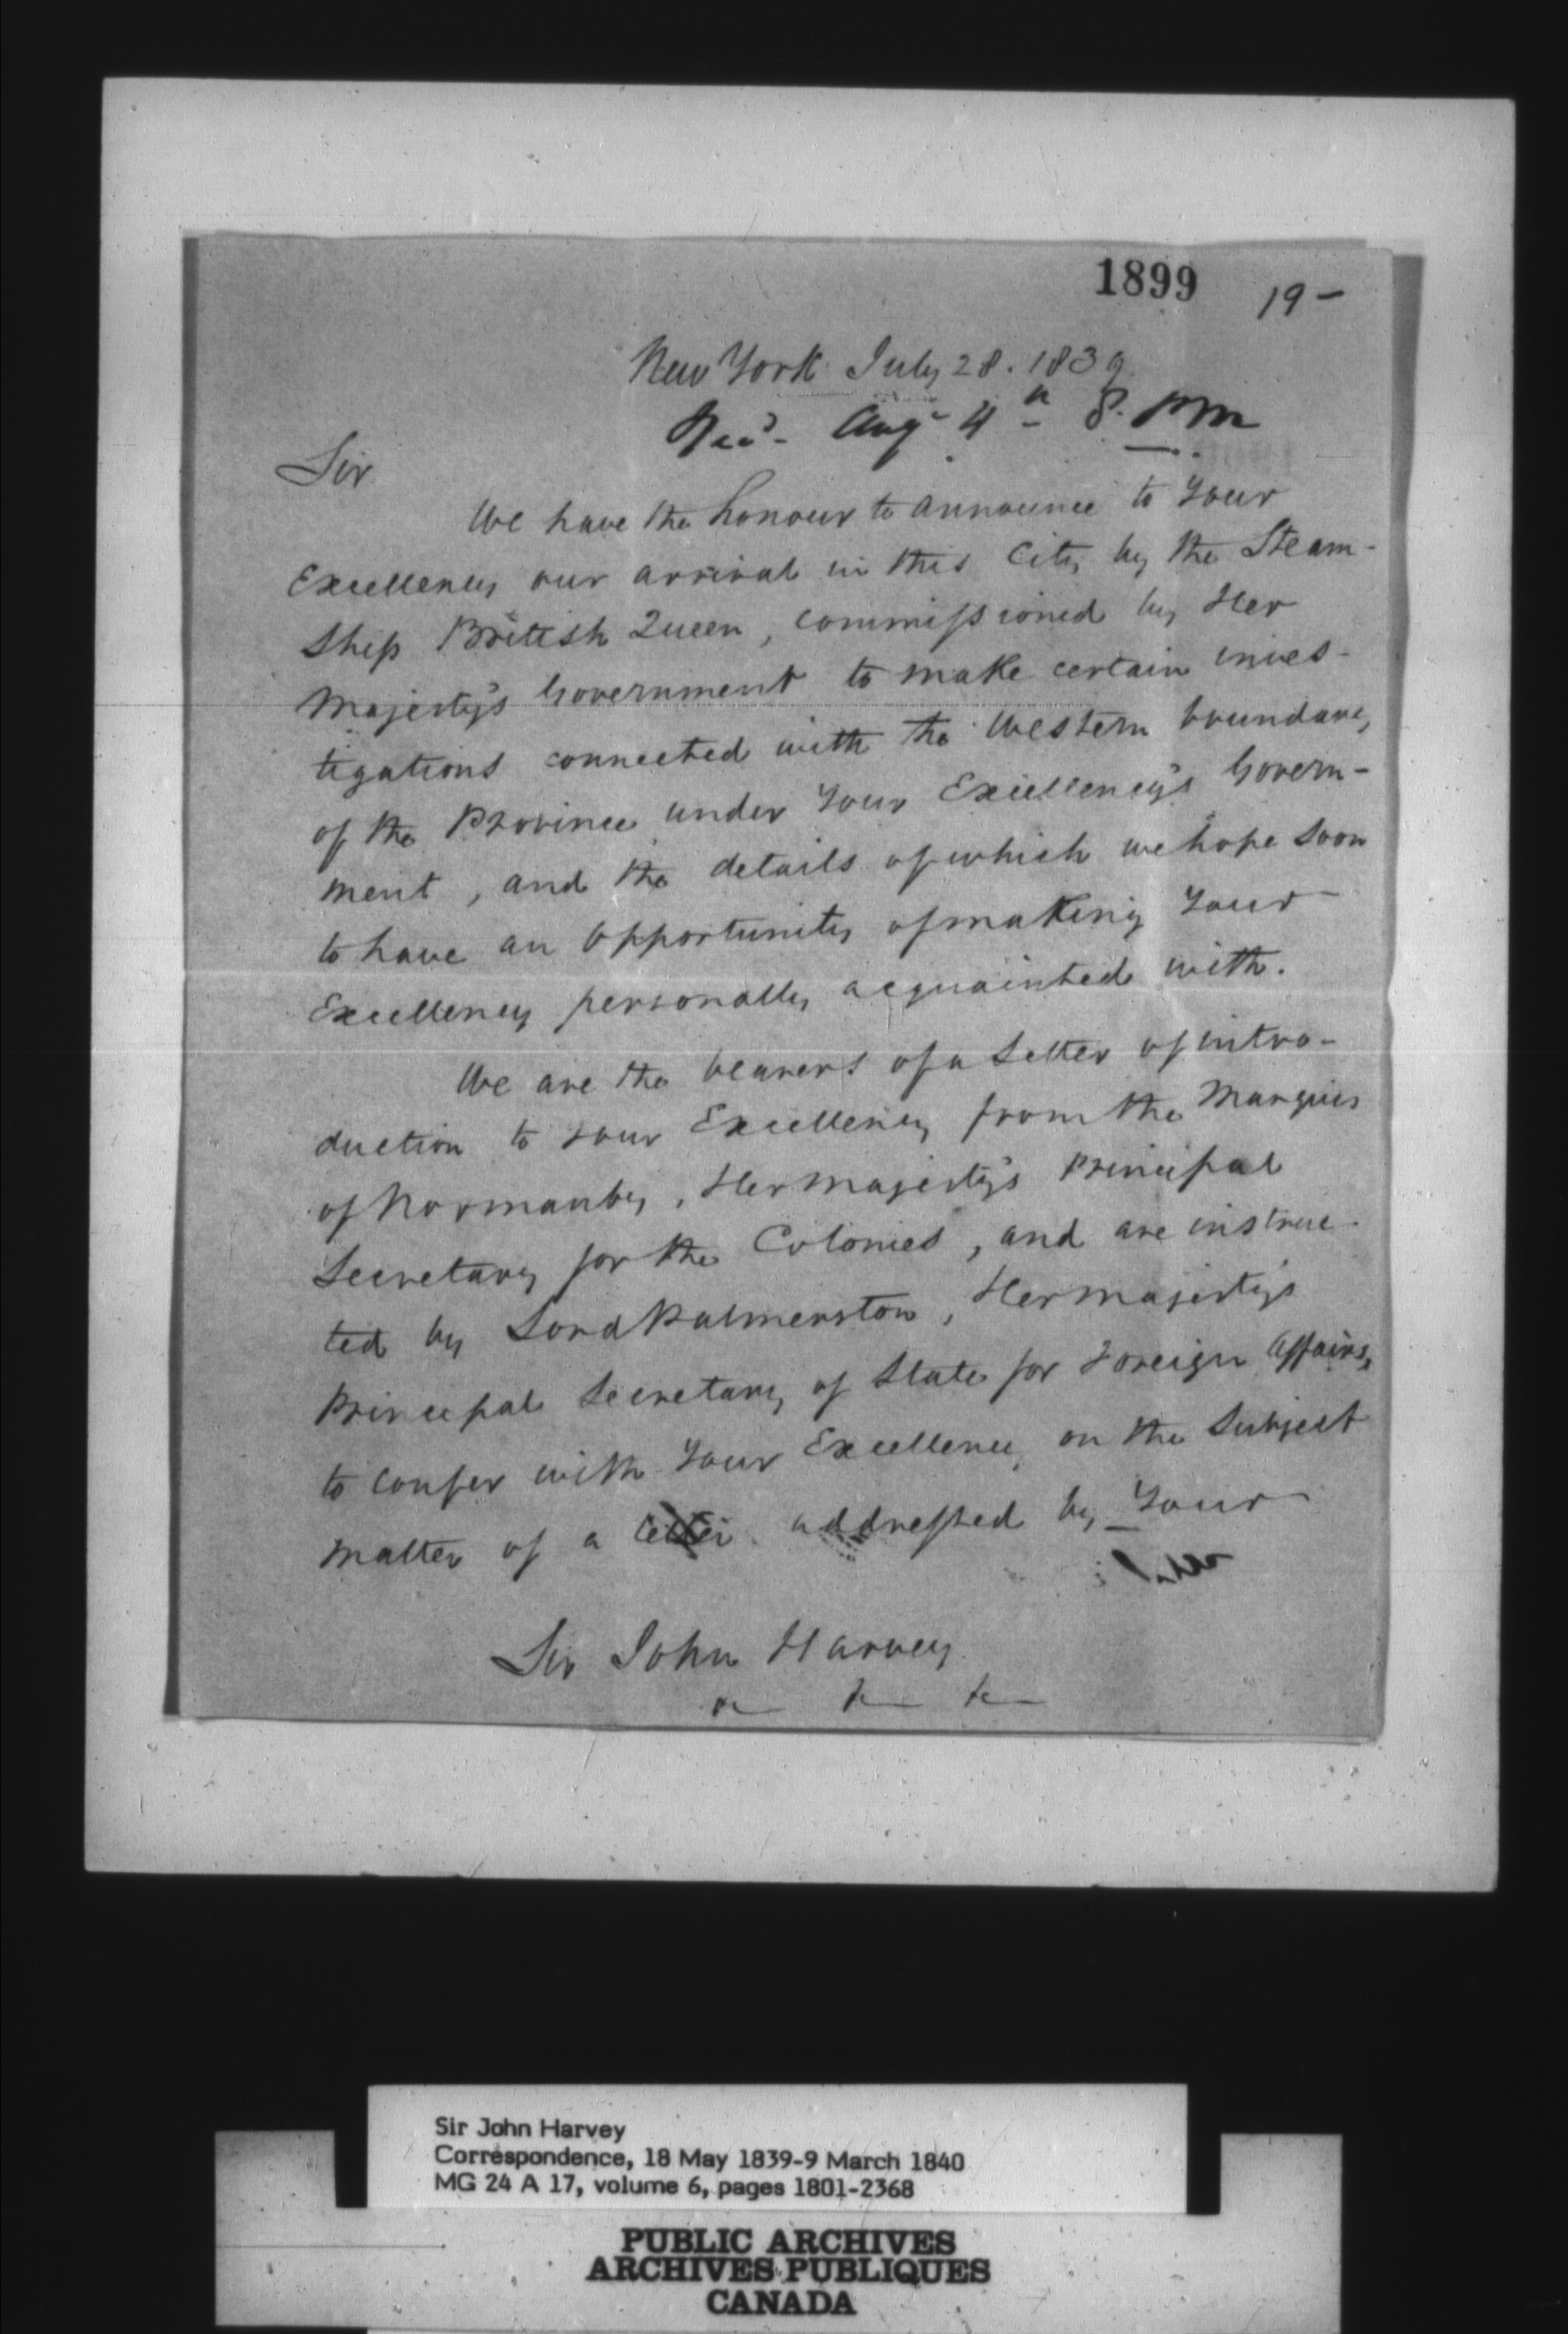 1899 19-
New York July 28. 1839.
Recd. Augt 4th 8. PM
Sir
We have the honour to announce to Your
Excellency our arrival in this City by the Steam-
Ship British Queen, commissioned by Her
Majesty's Government to make certain inves-
tigations connected with the Western boundary
of the Province under Your Excellency's Govern-
ment, and the details of which we hope soon
to have an opportunity of making Your
Excellency personally acquainted with.
We are the bearers of a Letter of intro-
duction to Your Excellency from the Marquis
of Normanby, Her Majesty's Principal
Secretary for the Colonies, and are instruc-
ted by Lord Palmerston, Her Majesty's
Principal Secretary of State for Foreign Affairs,
to confer with Your Excellency on the Subject
matter of a letter addressed by Your
Sir John Harvey
Sir John Harvey
Correspondence, 18 May 1839-9 March 1840
MG 24 A 17, volume 6, pages 1801-2368
PUBLIC ARCHIVES
ARCHIVES PUBLIQUES
CANADA